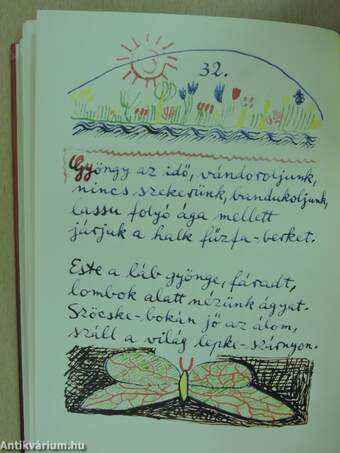 32.
Gyöngy az idő, vándoroljunk,
nincs szekerünk, bandukoljunk,
lassu folyó ága mellett
járjuk a halk fűzfa-berket.
Este a láb gyönge, fáradt,
lombok alatt nézünk ágyat.
Szöcske-bokán jő az álom,
száll a világ lepke-szárnyon.
Antikvárium.hu